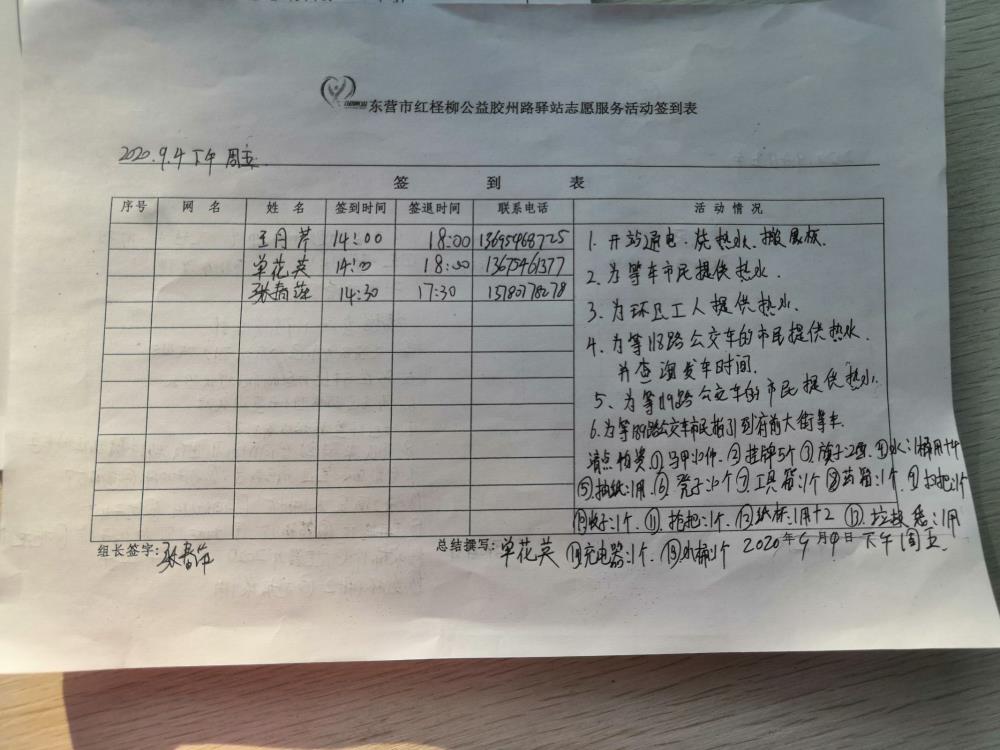 东营市红柽柳公益胶州路驿站志愿服务活动签到表
2020.9.4下午 周五
签 到 表
序号 网 名 姓 名 签到时间 签退时间 联系电话 活 动 情 况
王月芹 14:00 18:00 13695468725
单花英 14:00 18:00 13675461377
张春萍 14:30 17:30 13780778278
1. 开站通电、烧热水、搬展板.
2. 为等车市民提供热水.
3、为环卫工人提供热水.
4、为等118路公交车的市民提供热水.
并查询发车时间.
5、为等119路公交车的市民提供热水.
6.为等189路公交车市民指引到府前大街等车.
清点物资①马甲:12件 ②挂牌5个③旗子:2面.④水:1桶用+4
⑤抽纸:1用.⑥凳子:12个⑦工具箱:1个⑧药箱:1个⑨扫把:1个
⑩收子:1个.⑪拖把:1个.⑫纸杯:1用+2 ⑬垃圾袋:1用
组长签字:张春萍 总结撰写:单花英 ⑭充电器:1个.⑮水桶:1个 2020年9月4日下午周五.